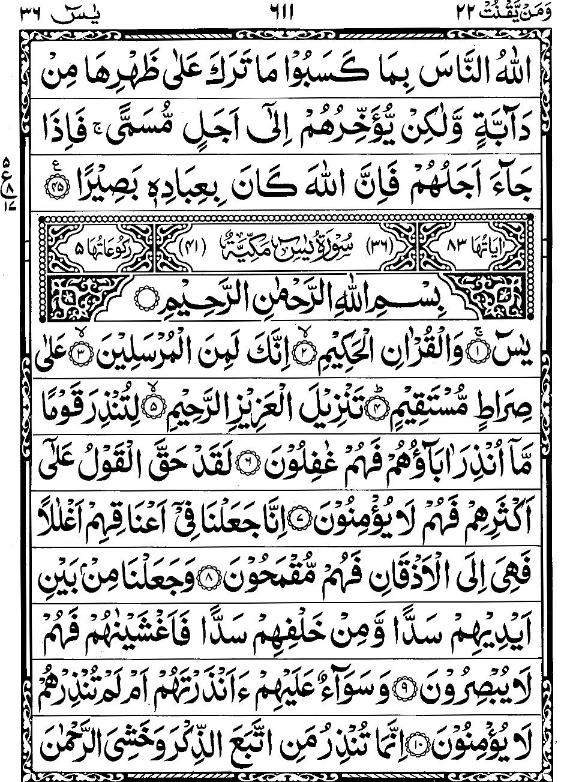 وَمَنۡ يَّقۡنُتۡ ٢٢ ٦١١ يٰسٓ ٣٦
اللّٰهُ النَّاسَ بِمَا كَسَبُوۡا مَا تَرَكَ عَلٰى ظَهۡرِهَا مِنۡ
دَآبَّةٍ وَّلٰكِنۡ يُّؤَخِّرُهُمۡ اِلٰٓى اَجَلٍ مُّسَمًّى ۚ فَاِذَا
جَآءَ اَجَلُهُمۡ فَاِنَّ اللّٰهَ كَانَ بِعِبَادِهٖ بَصِيۡرًا ﴿٤٥﴾
ع ٥ ٨ ١٧
اٰيَاتُهَا ٨٣ (٣٦) سُوۡرَةُ يٰسٓ مَكِّيَّةٌ (٤١) رُكُوۡعَاتُهَا ٥
بِسۡمِ اللّٰهِ الرَّحۡمٰنِ الرَّحِيۡمِ
يٰسٓ ۚ ﴿١﴾ وَالۡقُرۡاٰنِ الۡحَكِيۡمِ ۙ ﴿٢﴾ اِنَّكَ لَمِنَ الۡمُرۡسَلِيۡنَ ۙ ﴿٣﴾ عَلٰى
صِرَاطٍ مُّسۡتَقِيۡمٍ ؕ ﴿٤﴾ تَنۡزِيۡلَ الۡعَزِيۡزِ الرَّحِيۡمِ ۙ ﴿٥﴾ لِتُنۡذِرَ قَوۡمًا
مَّاۤ اُنۡذِرَ اٰبَآؤُهُمۡ فَهُمۡ غٰفِلُوۡنَ ﴿٦﴾ لَقَدۡ حَقَّ الۡقَوۡلُ عَلٰٓى
اَكۡثَرِهِمۡ فَهُمۡ لَا يُؤۡمِنُوۡنَ ﴿٧﴾ اِنَّا جَعَلۡنَا فِىۡۤ اَعۡنَاقِهِمۡ اَغۡلٰلًا
فَهِىَ اِلَى الۡاَذۡقَانِ فَهُمۡ مُّقۡمَحُوۡنَ ﴿٨﴾ وَجَعَلۡنَا مِنۡۢ بَيۡنِ
اَيۡدِيۡهِمۡ سَدًّا وَّمِنۡ خَلۡفِهِمۡ سَدًّا فَاَغۡشَيۡنٰهُمۡ فَهُمۡ
لَا يُبۡصِرُوۡنَ ﴿٩﴾ وَسَوَآءٌ عَلَيۡهِمۡ ءَاَنۡذَرۡتَهُمۡ اَمۡ لَمۡ تُنۡذِرۡهُمۡ
لَا يُؤۡمِنُوۡنَ ﴿١٠﴾ اِنَّمَا تُنۡذِرُ مَنِ اتَّبَعَ الذِّكۡرَ وَخَشِىَ الرَّحۡمٰنَ